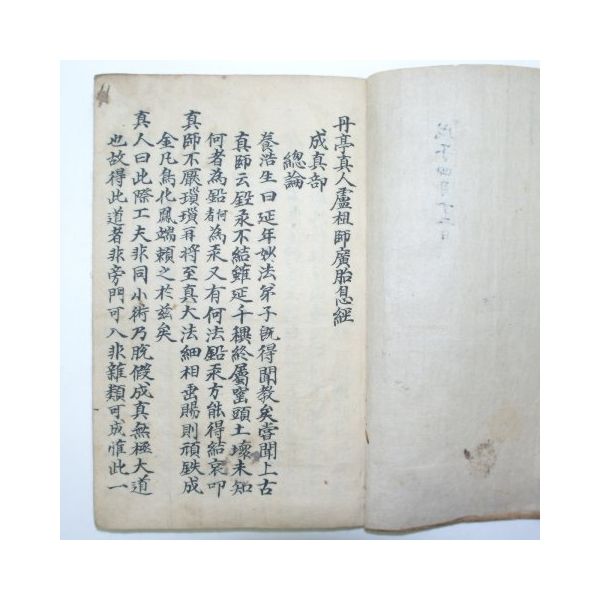 丹亭真人盧祖師廣胎息經
成真部
總論
養浩生曰延年妙法弟子既得聞教矣嘗聞上古
真師云鉛汞不結雖延千禩終屬壑頭土壞未知
何者為鉛何者為汞又有何法鉛汞方能得結哀叩
真師不厭瑣瑣再將至真大法細相垂賜則頑鉄成
金凡鳥化鳳端頼之於茲矣
真人曰此際工夫非同小術乃脫假成真無極大道
也故得此道者非旁門可入非雜類可成惟此一